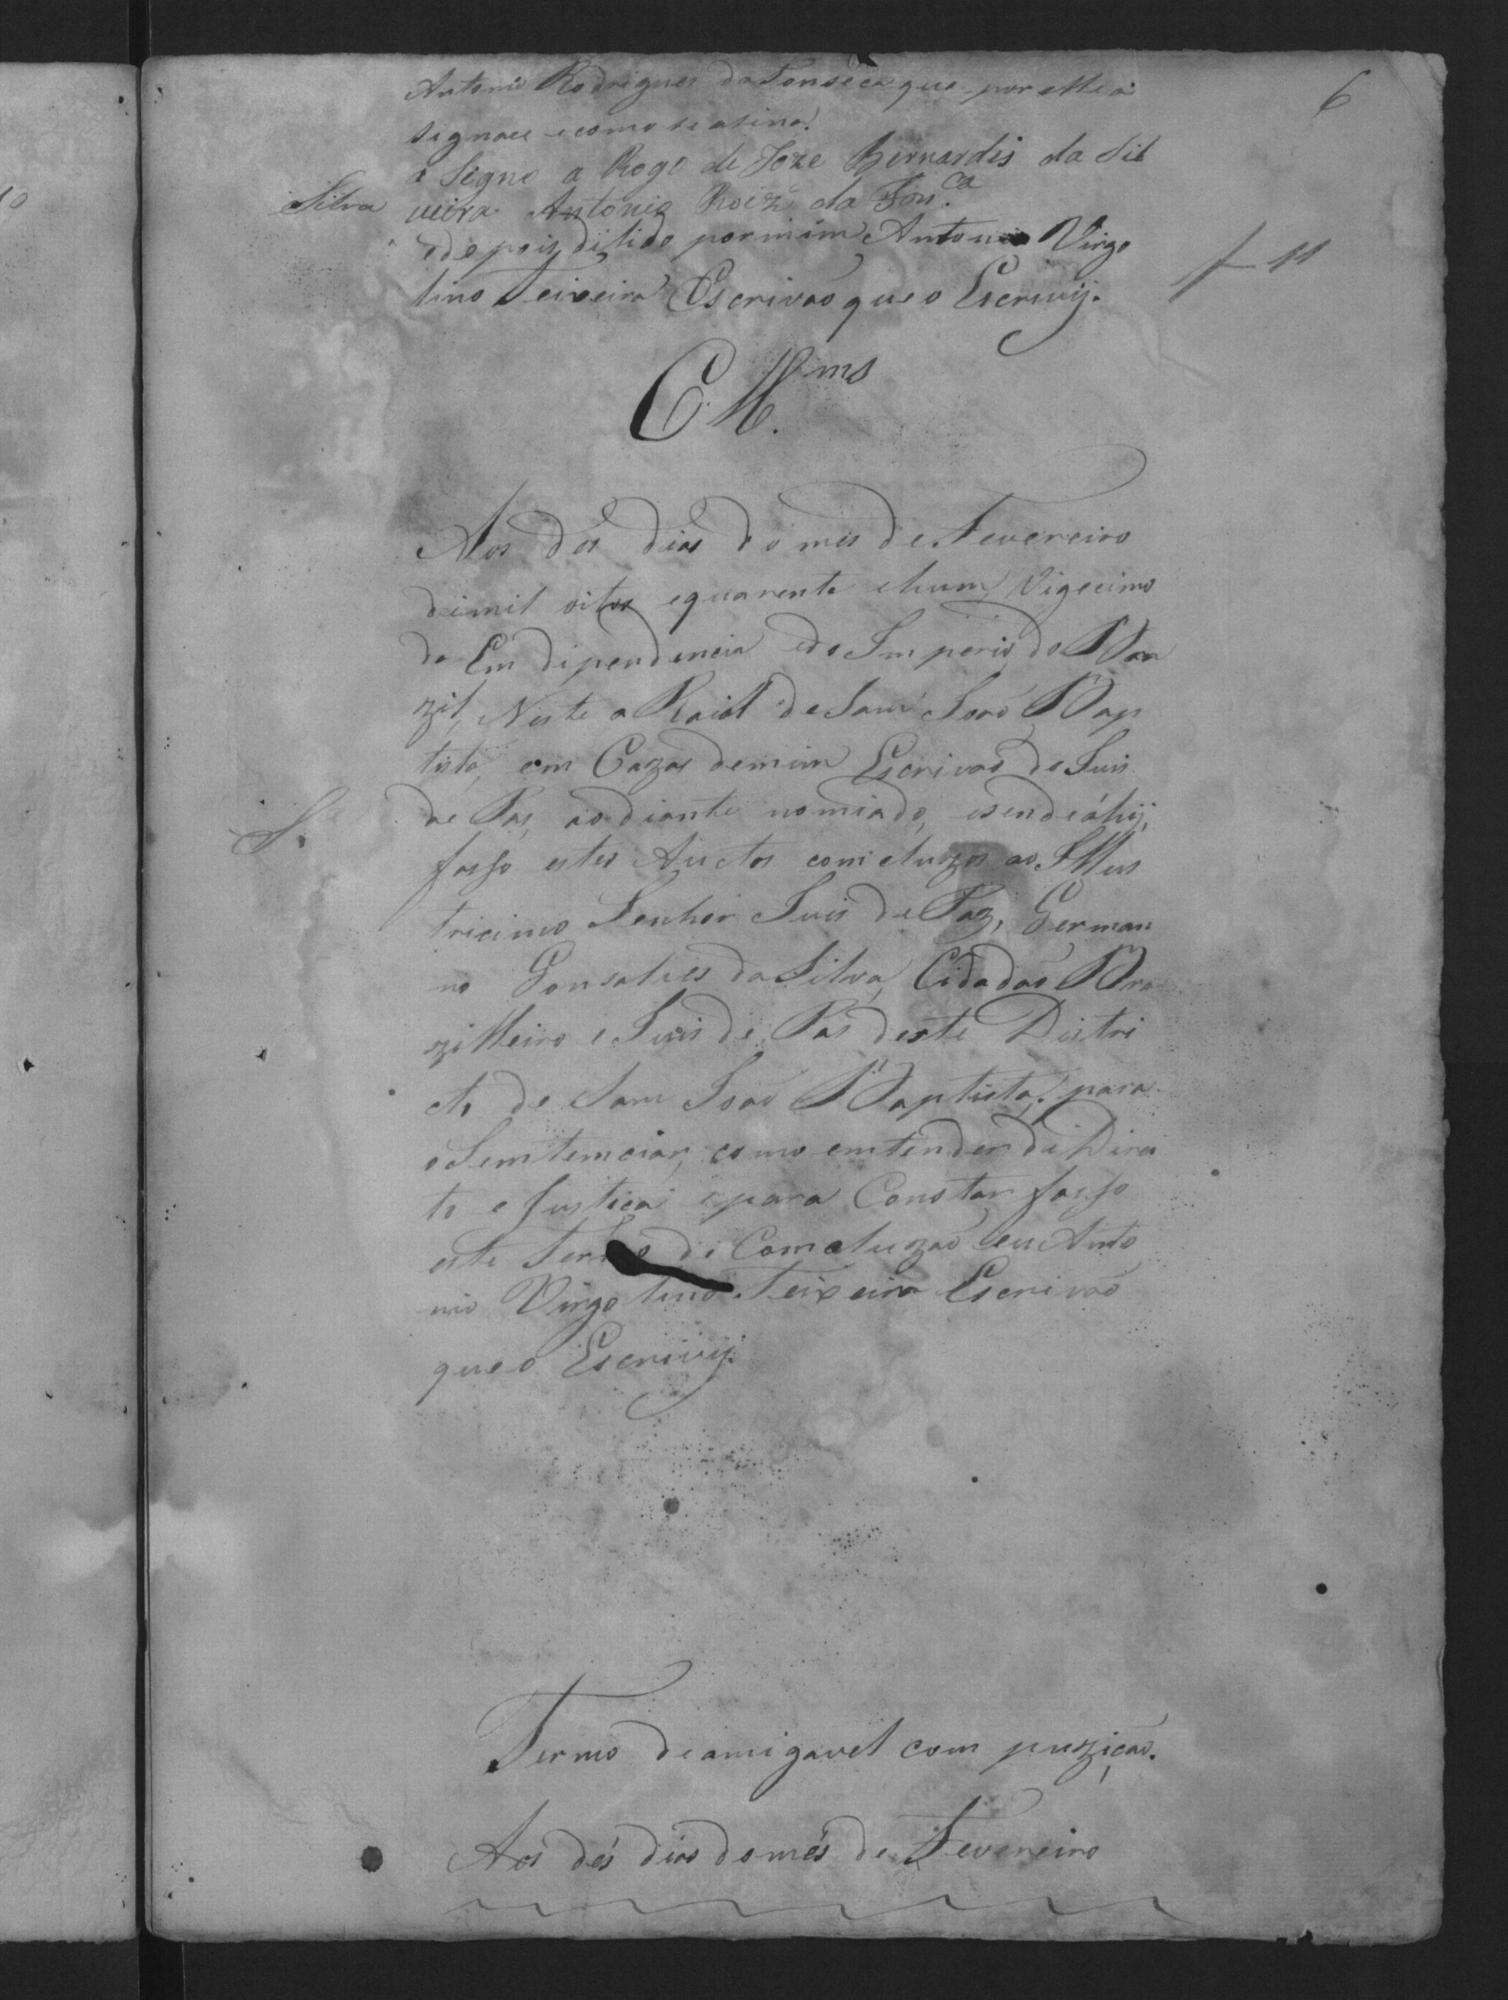 6
Antonio Rodrigues da Fonseca que por elle a
signace e como se asina.
a Signo a Rogo de Joze Bernardis da Sil
Silva
veira Antonio Roiz da Fon.ca
edepois ditido por mim Antonio Virgo
lino Teixeira Escrivaõ que o Escrivij.
f 11
Cllmos
Aos dés dias do mes de Fevereiro
demil oitos equarenta ehum Vigecimo
da Emdipendencia edo Imperio do Bra
zil, Neste aRaial de Sam Joaõ Bap
tista, em Cazas demim Escrivaõ do Juis
de Pas, aodiante nomiado, esendeáhij,
fasso estes Auctos comcluzos ao Illus
tricimo Senhor Juis de Paz, German
no Gonsalves da Silva, Cidadaõ Bra
zilleiro e Juis de Pas deste Distri
cto de Sam Joaõ Baptista, para
o Sentemciar, como emtender di Direi
to e Justica e para Constar fasso
este Termo di Comcluzaõ eu Anto
nio Virgolino Teixeira Escrivaõ
que o Escrivij.
Termo deamigavel com puziçaõ.
Aos dés dias do més de Fevereiro